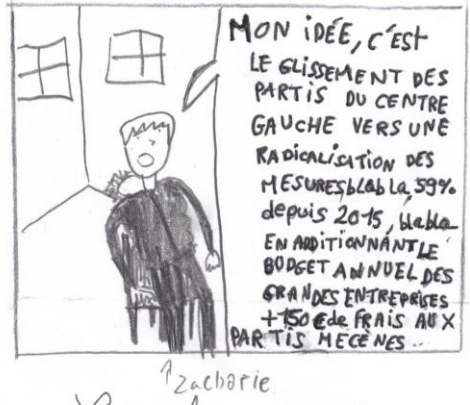 MON iDÉE, C'EST
LE GLISSEMENT DES
PARTIS DU CENTRE
GAUCHE VERS UNE
RADICALISATION DES
MESURES blabla, 59%
depuis 2015, blabla
EN ADDITIONNANT LE
BUDGET ANNUEL DES
GRANDES ENTREPRISES
+150€ de FRAIS AUX
PARTIS MECÈNES..
↑ Zacharie